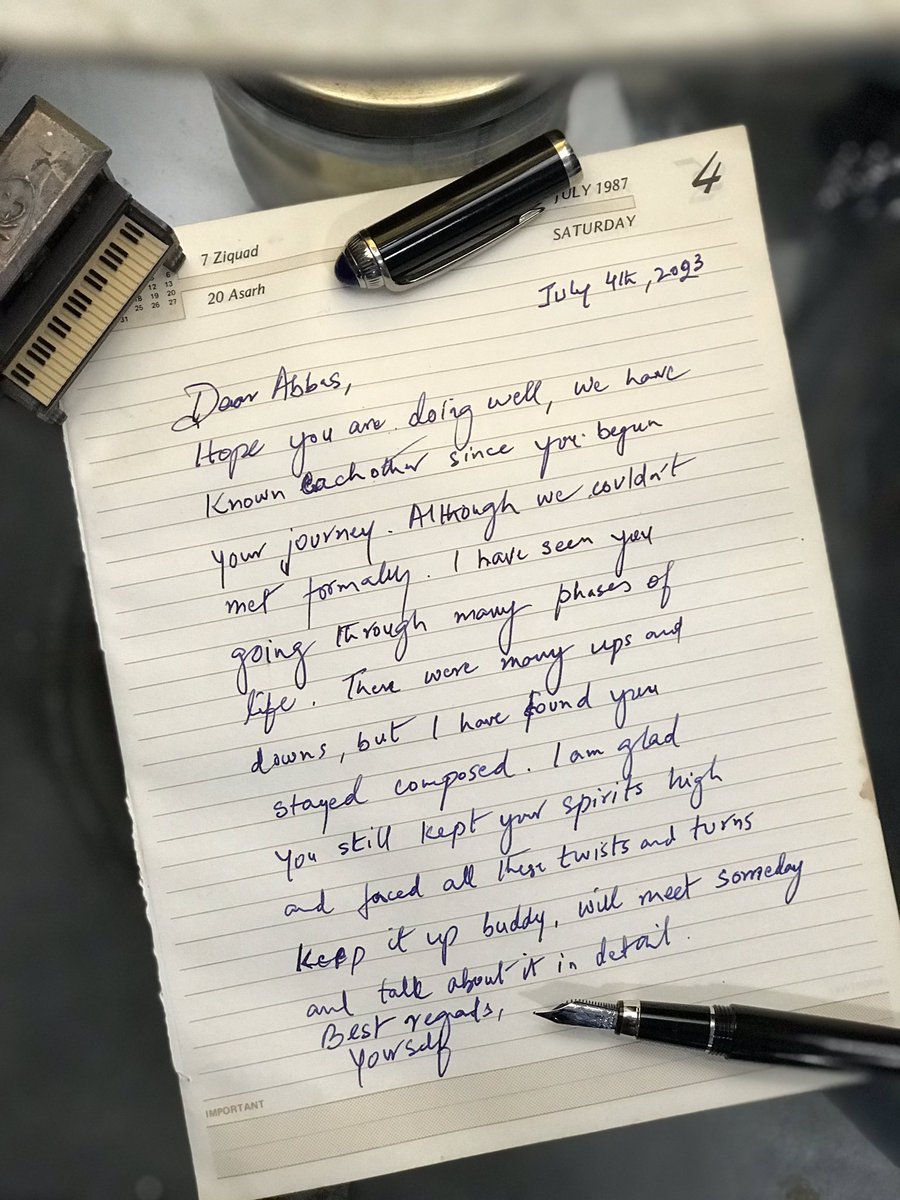 JULY 1987
4
SATURDAY
7 Ziquad
20 Asarh
6
12 13
18 19 20
25 26 27
31
July 4th, 2093
Dear Abbas,
Hope you are doing well, we have
known eachother since you begun
your journey. Although we couldn't
met formally. I have seen you
going through many phases of
life. There were many ups and
downs, but I have found you
stayed composed. I am glad
You still kept your spirits high
and faced all these twists and turns
Keep it up buddy, will meet someday
and talk about it in detail.
Best regads,
Yourself
IMPORTANT